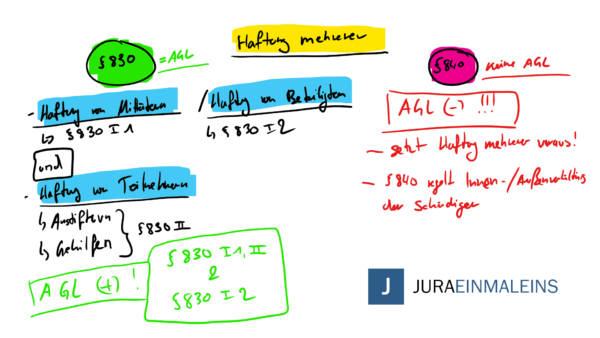 Haftung mehrerer
§830 = AGL
- Haftung von Mittätern / Haftung von Beteiligten
↳ §830 I 1
↳ §830 I 2
und
- Haftung von Teilnehmern
↳ Anstiftern
↳ Gehilfen } §830 II
AGL (+) !
§830 I 1, II
&
§830 I 2
§840 keine AGL
AGL (-) !!!
- setzt Haftung mehrerer voraus!
- §840 regelt Innen-/Außenverhältnis
der Schädiger
J JURAEINMALEINS